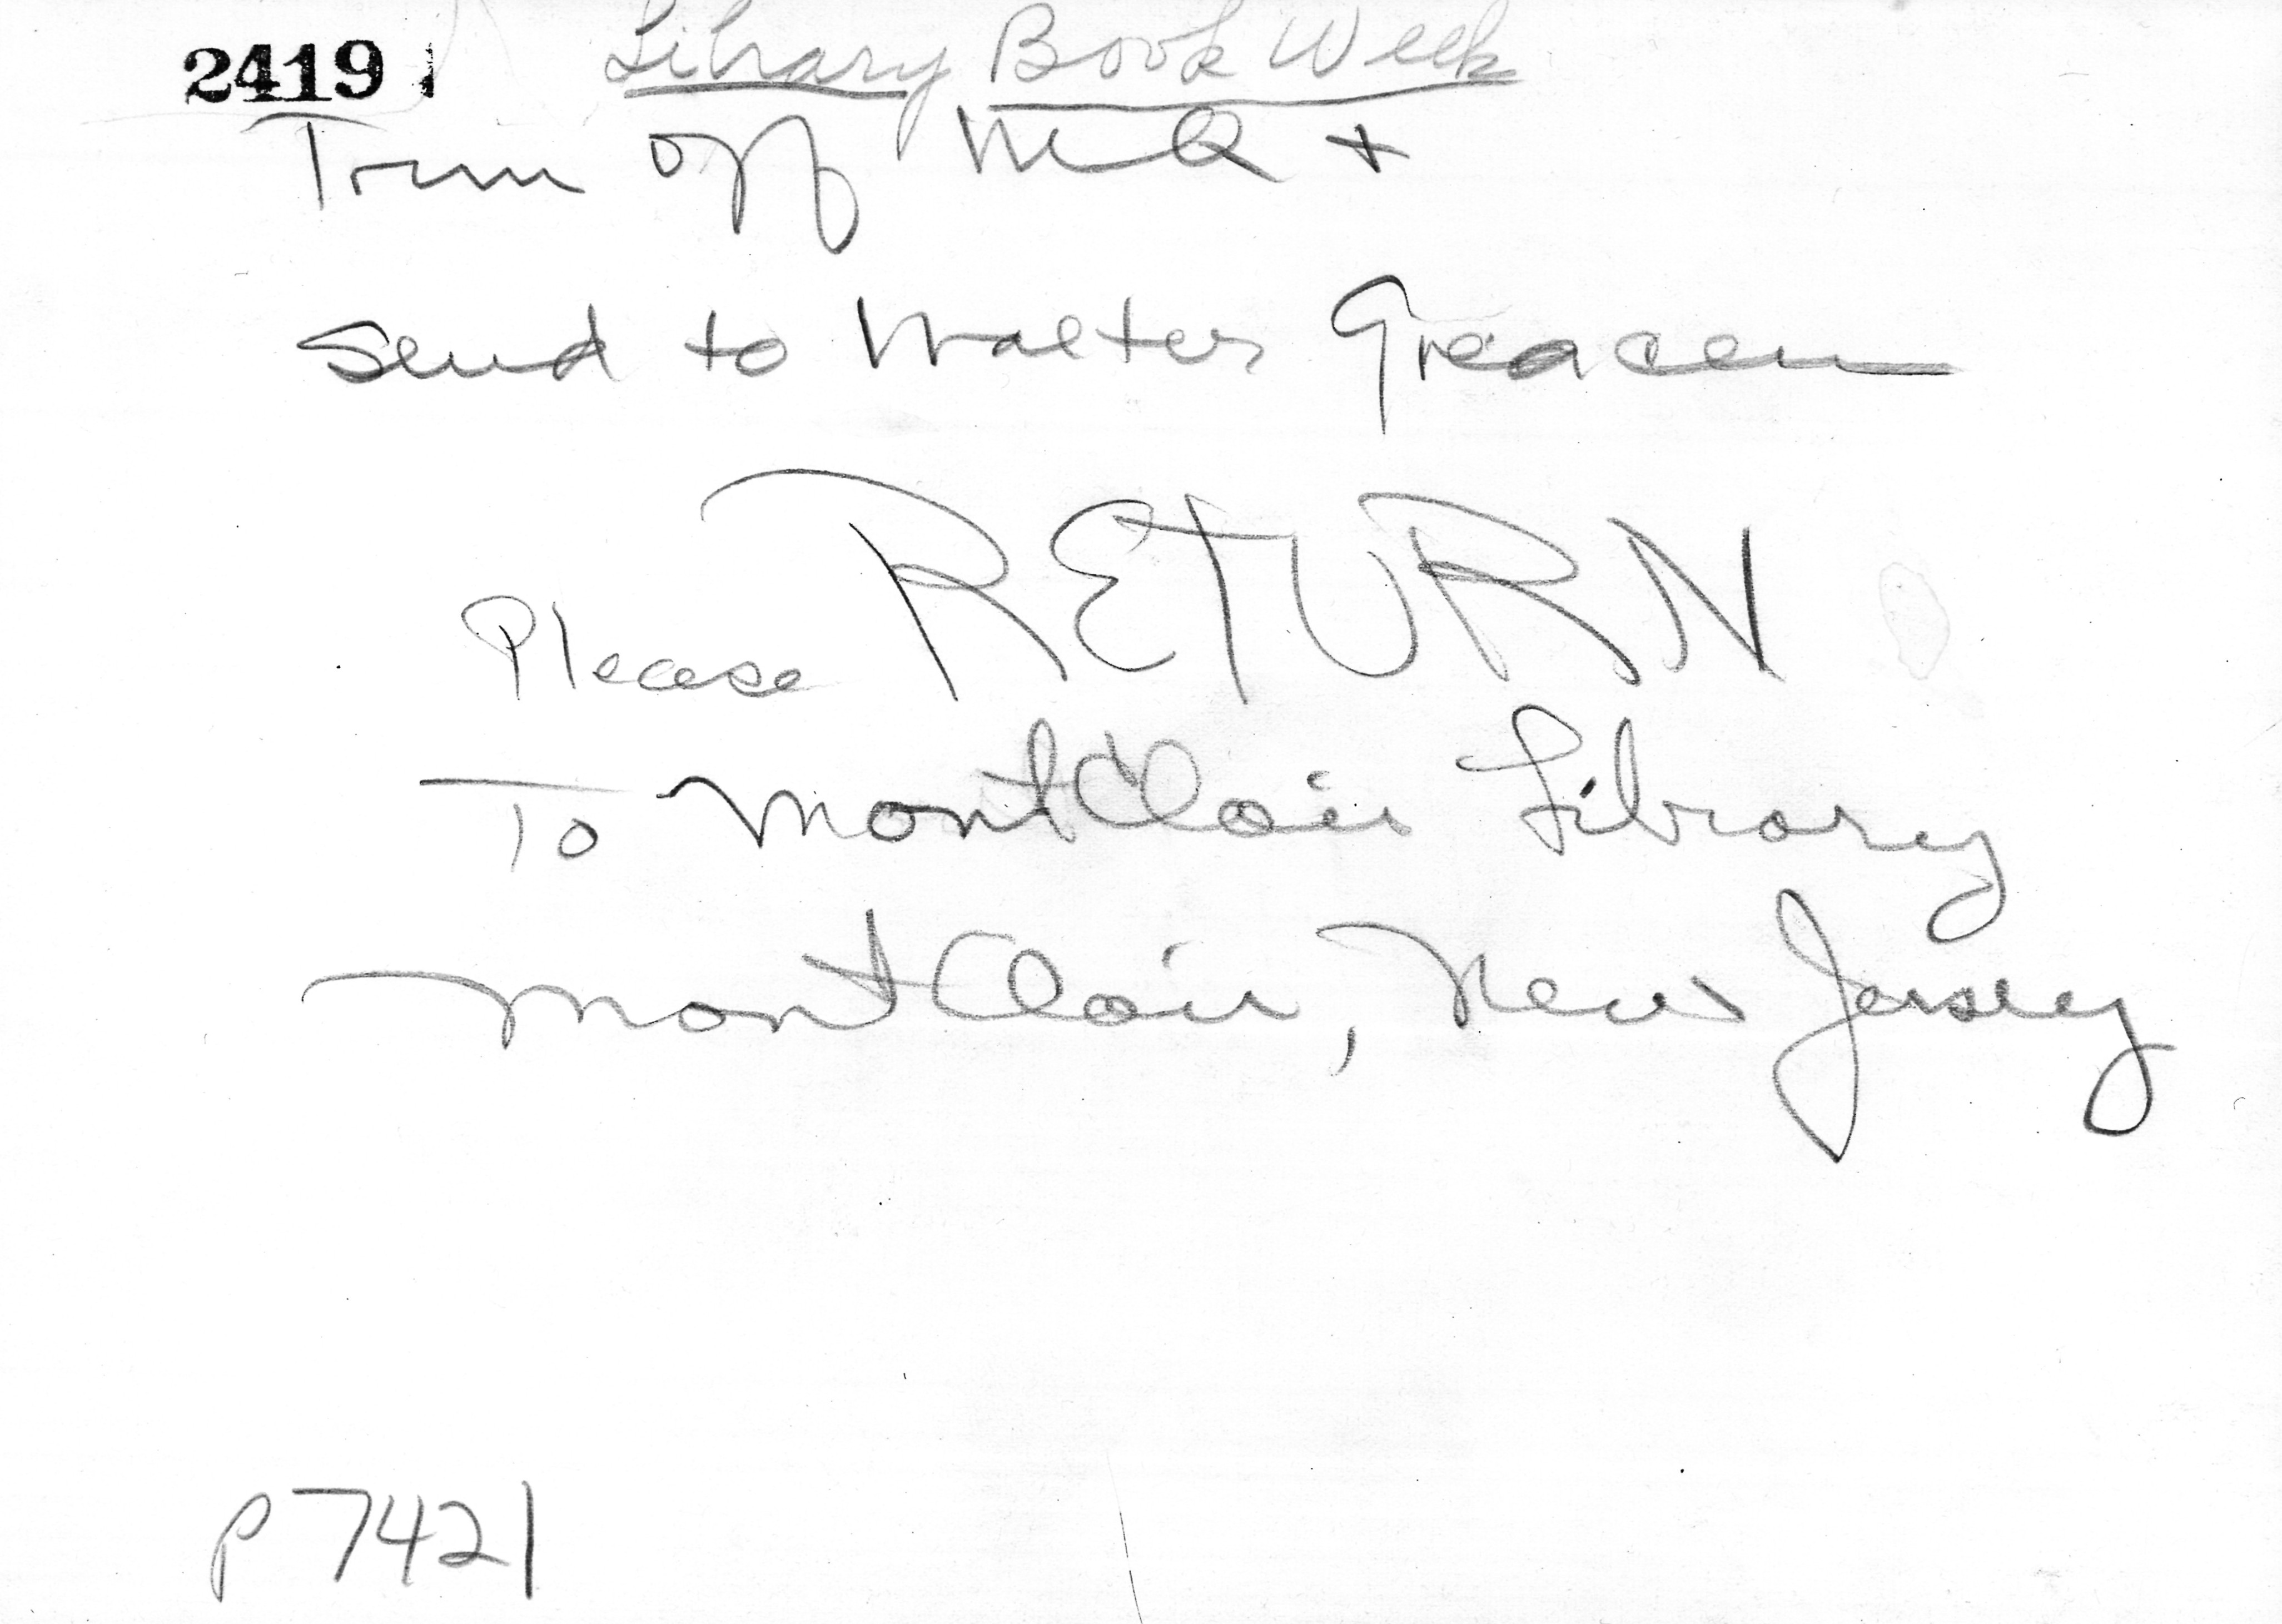 2419
Library Book Week
Trim off ma +
Send to Walter Greacen
Please RETURN
To MontClair Library
MontClair, New Jersey
P7421